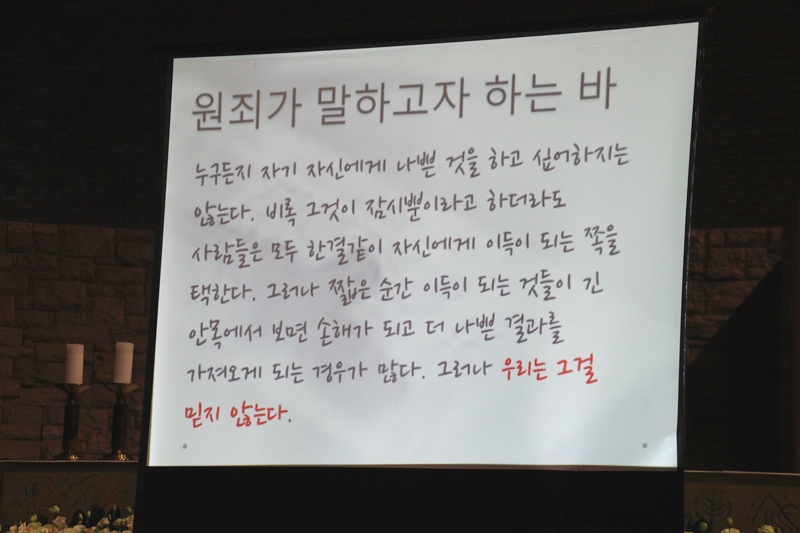 원죄가 말하고자 하는 바
누구든지 자기 자신에게 나쁜 것을 하고 싶어하지는
않는다. 비록 그것이 잠시뿐이라고 하더라도
사람들은 모두 한결같이 자신에게 이득이 되는 쪽을
택한다. 그러나 짧은 순간 이득이 되는 것들이 긴
안목에서 보면 손해가 되고 더 나쁜 결과를
가져오게 되는 경우가 많다. 그러나 우리는 그걸
믿지 않는다.